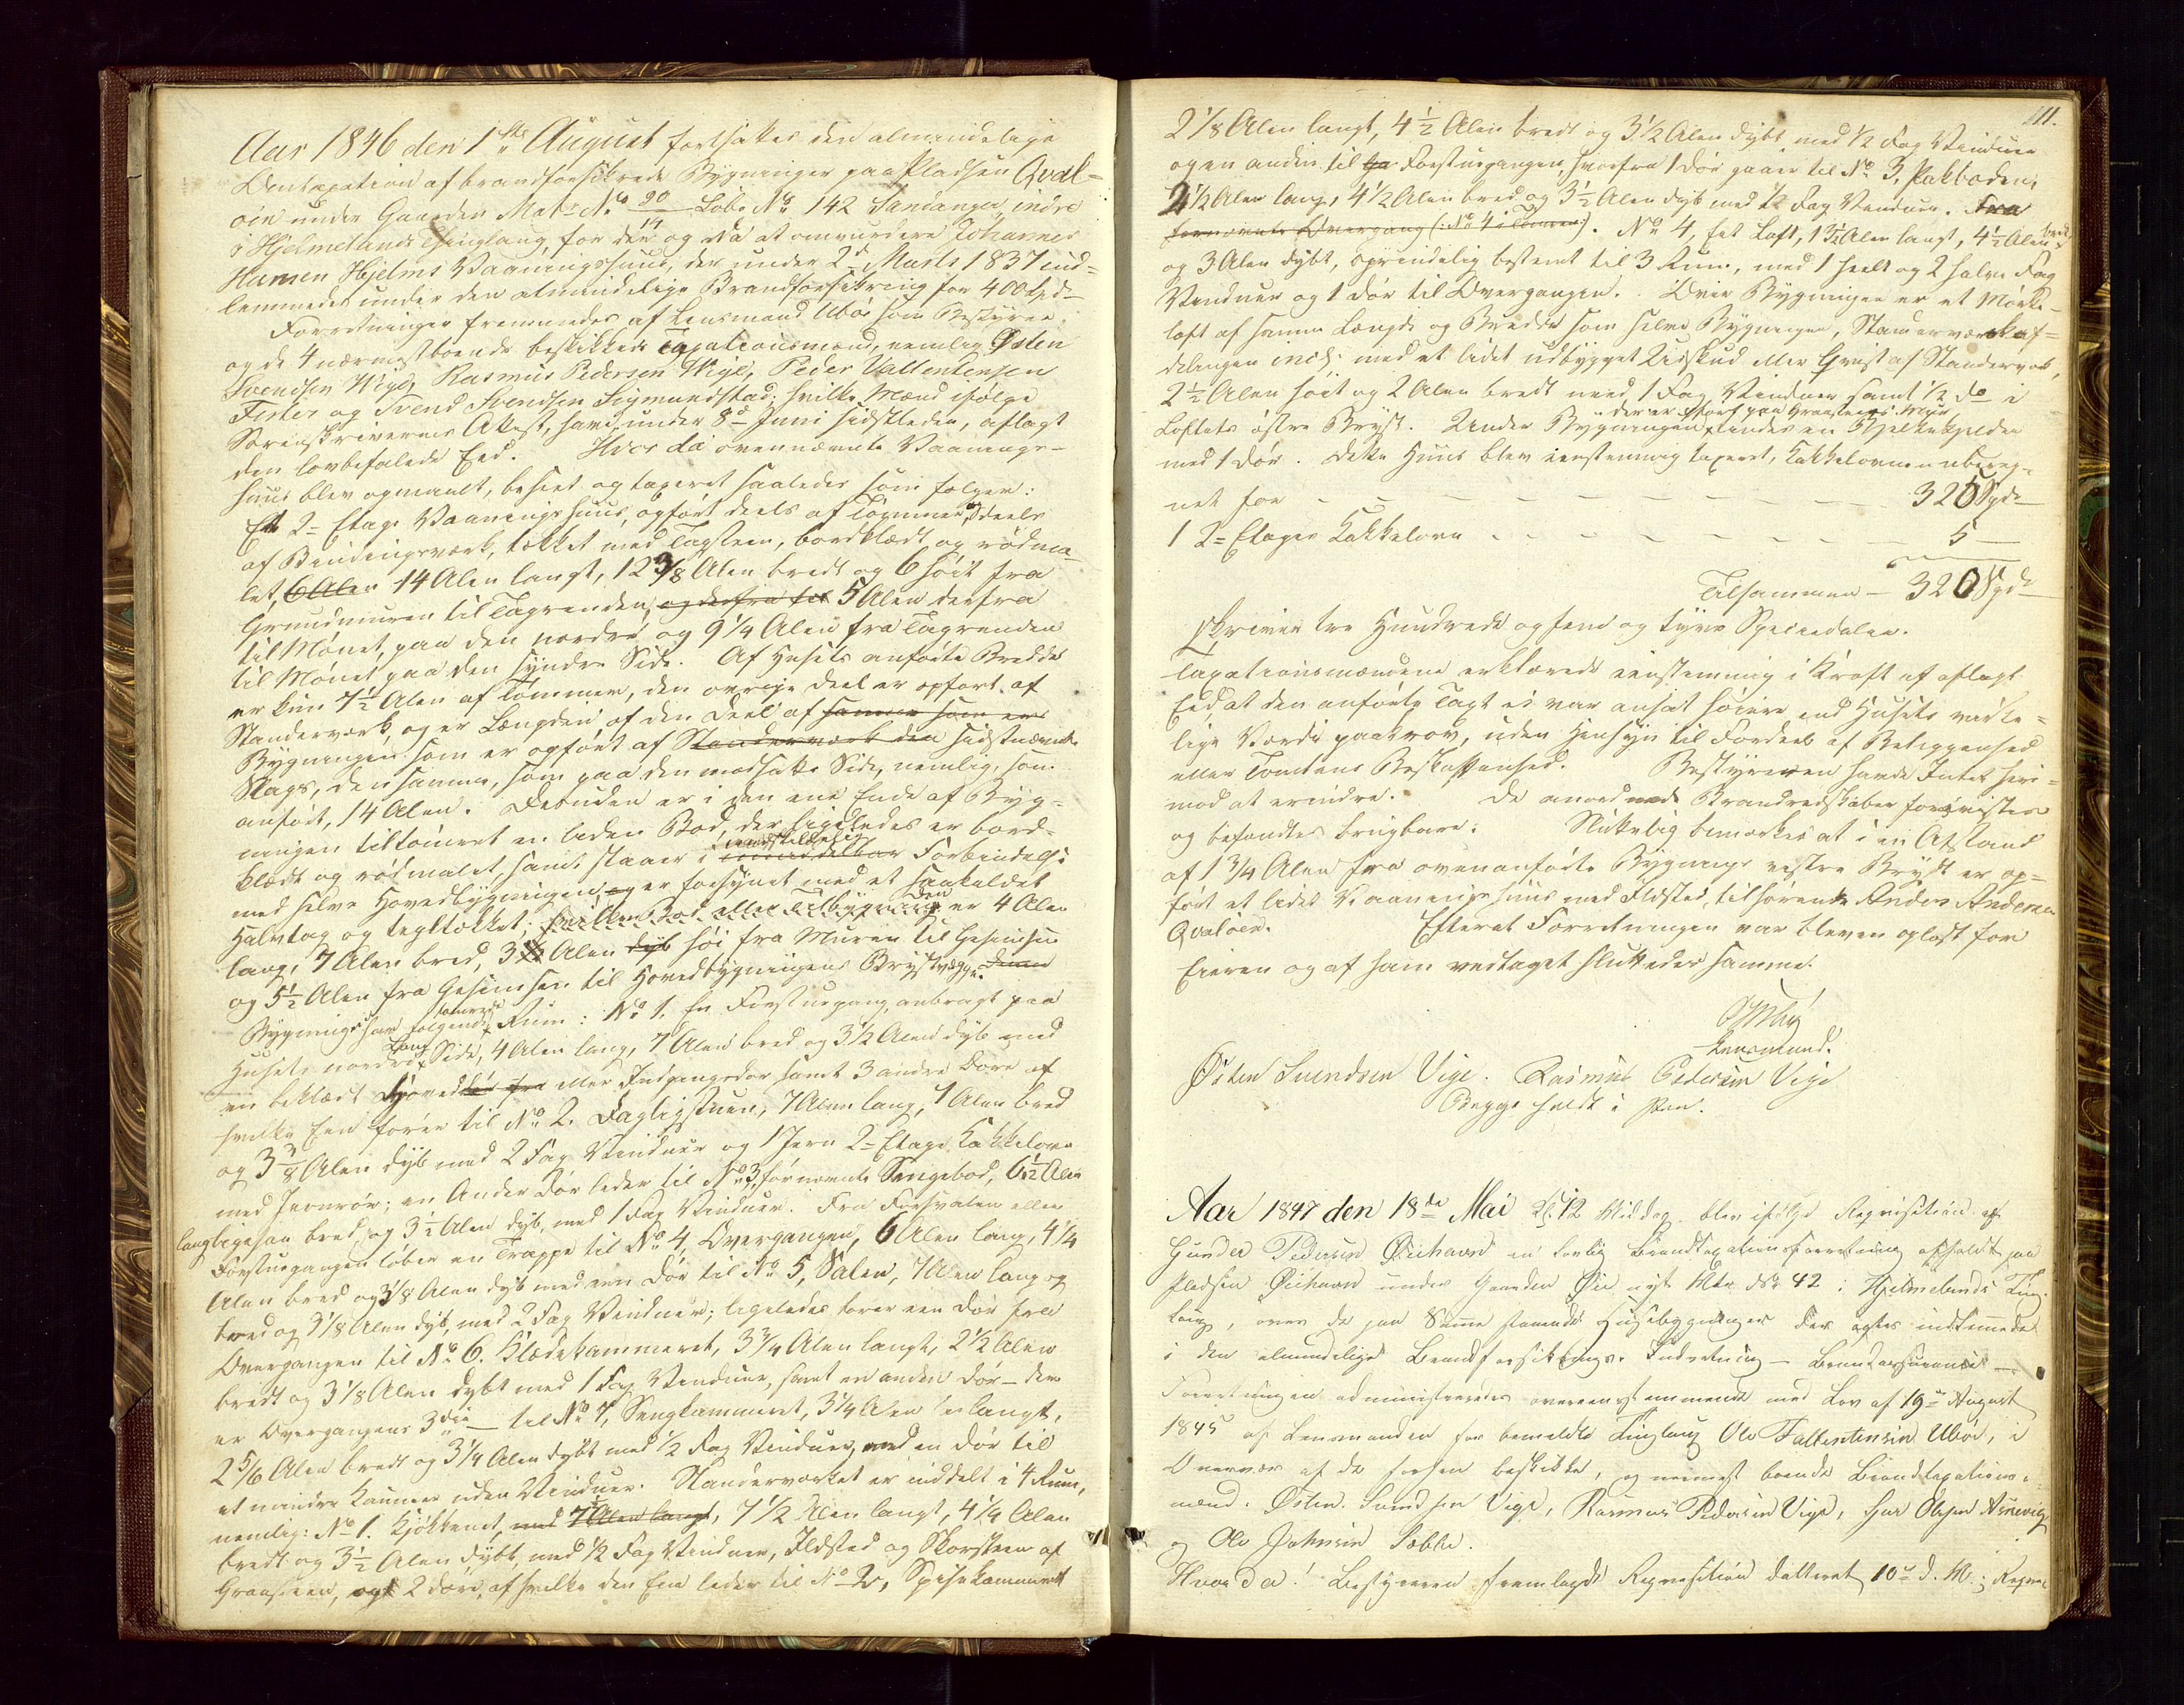 Aar 1846 den 1ste August fortsattes den almindelige
Omtaxation af brandforsikrede Bygninger paa Pladsen Qval-
øen under Gaarden Matr. No 90/14 Løb. No 142 Sandanger indre
i Hjelmelands Thinglaug, for der og da at omvurdere Johannes
Hansen Hjelms Vaaningshuus, der under 2d Marts 1837 ind-
lemmedes under den almindelige Brandforsikring for 400 Spd.
Forretningen fremmedes af Lensmand Ubøe som Bestyrer
og de 4 nærmestboende beskikkede Taxationsmænd, nemlig Østen
Svendsen Wige, Rasmus Pedersen Wige, Peder Vallentinsen
Fister og Svend Svendsen Sigmundstad; hvilke Mænd ifølge
Sorenskriverens Attest, have under 8de Juni sidstleden, aflagt
den lovbefalede Eed. Hvor da ovennævnte Vaanings-
huus blev opmaalt, beseet og taxeret saaledes som følger:
Et 2 Etage Vaaningshuus, opført deels af Tømmer og deels
af Bindingsværk, tækket med Tagsteen, bordklædt og rødma-
let, 6 Alen 14 Alen langt, 12 3/8 Alen bredt og 6 høit fra
Grundmuren til Tagrenden, og derfra til 5 Alen derfra
til Mønet, paa den nordre og 9 1/4 Alen fra Tagrenden
til Mønet paa den søndre Side. Af Husets anførte Bredde
er kun 7 1/2 Alen af Tømmer, den øvrige Deel er opført af
Standerværk, og er Længden af den Deel af samme som er
Bygningen som er opført af Standerværk den sidstnævnte
Slags, den samme, som paa den modsatte Side, nemlig, som
anført, 14 Alen. Desuden er i den ene Ende af Byg-
ningen tiltømret en liden Bod, der ligeledes er bord-
klædt og rødmalet, samt staaer i umiddelbar Forbindelse
med selve Hovedbygningen og er forsynet med et saakaldet
Halvtag og tegltækket; hvilken Bod eller Tilbygning er 4 Alen
lang, 7 Alen bred, 3 1/2 Alen dyb høi fra Muren til Gesimsen
og 5 1/2 Alen fra Gesimsen til Hovedbygningens Brystvæg. Denne
Bygning har følgende tømrede Rum: No 1. En Forstuegang, anbragt paa
Husets nordre Lang Side, 4 Alen lang, 7 Alen bred og 3 1/2 Alen dyb med
en beklædt Hoveddør fra eller Indgangsdør samt 3 andre Døre af
hvilke Een fører til No 2. Dagligstuen, 7 Alen lang, 7 Alen bred
og 3 3/8 Alen dyb med 2 Fag Vinduer og 1 Jern 2 Etage Kakkelovn
med Jernrør; en Anden Dør leder til No 3, førnævnte Sengebod, 6 1/2 Alen
lang ligesaa bred, og 3 1/2 Alen dyb, med 1 Fag Vinduer. Fra Forsvalen eller
Forstuegangen løber en Trappe til No 4, Overgangen, 6 Alen lang, 4 1/4
Alen bred og 3 1/8 Alen dyb med een Dør til No 5, Salen, 7 Alen lang og
bred og 3 1/8 Alen dyb, med 2 Fag Vinduer; ligeledes fører een Dør fra
Overgangen til No 6. Klædekammeret, 3 3/4 Alen langt, 2 1/2 Alen
bredt og 3 1/8 Alen dybt med 1 Fag Vinduer, samt en anden Dør – der
er Overgangens 3die – til No 7, Sengkammeret, 3 1/4 Alen langt,
2 5/6 Alen bredt og 3 1/4 Alen dybt med 1/2 Fag Vinduer, med en Dør til
et mindre Kammer uden Vinduer. Standerværket er inddelt i 4 Rum,
nemlig: No 1. Kjøkkenet, med 7 Alen langt, 7 1/2 Alen langt, 4 1/4 Alen
bredt og 3 1/2 Alen dybt, med 1/2 Fag Vinduer, Ildsted og Skorsteen af
Graasteen, og 2 Døre, af hvilke den Ene leder til No 2, Spisekammeret
111.
2 1/8 Alen langt, 4 1/2 Alen bredt og 3 1/2 Alen dybt, med 1/2 Fag Vinduer
og en anden til Forstuegangen, hvorfra 1 Dør gaaer til No 3, Pakboden,
4 1/2 Alen lang, 4 1/2 Alen bred og 3 1/2 Alen dyb med 1/2 Fag Vinduer. Fra
fornævnte Overgang (: No 4 i Tømmer:). No 4, Et Loft, 13 1/2 Alen langt, 4 1/2 Alen bredt
og 3 Alen dybt, oprindelig bestemt til 3 Rum, med 1 heelt og 2 halve Fag
Vinduer og 1 Dør til Overgangen. Over Bygningen er et Mørke-
loft af samme Længde og Bredde som selve Bygningen, Standerværksaf-
delingen incl: med et lidet udbygget Udskud eller Qvist af Standerværk,
2 1/2 Alen høit og 2 Alen bredt med 1 Fag Vinduer samt 1/2 do i
Loftets østre Bryst. Under Bygningen der er opført paa Graasteens Muur findes en Kjelder
med 1 Dør. Dette Huus blev eenstemmig taxeret, Kakkelovnen ubereg-
net for – – – – – – 320 Spd.
1 2 Etages Kakkelovn – – – – – – 5 –
Tilsammen – 320 Spd.
skriver tre Hundrede og fem og tyve Speciedaler.
Taxationsmændene erklærede eenstemmig i Kraft af aflagt
Eed at den anførte Taxt ei var ansat høiere end Husets virke-
lige Værdi paakrov, uden Hensyn til Fordeel af Beliggenhed
eller Tomtens Beskaffenhed. Bestyreren havde Intet heri-
mod at erindre. De anordnede Brandredskaber forevistes
og befandtes brugbare. Slutelig bemærkes at i en Afstand
af 1 3/4 Alen fra ovenanførte Bygnings vestre Bryst er op-
ført et lidet Vaaningshuus med Ildsted, tilhørende Anders Andersen
Qvaløen. Efterat Forretningen var bleven oplæst for
Eieren og af ham vedtaget sluttedes samme.
Lensmand.
Østen Svendsen Vige. Rasmus Pedersen Vige
Begge holdt i Pen.
Aar 1847 den 18de Mai Kl. 12 Middag blev ifølge Reqvisition af
Gunder Pedersen Øiehavn en lovlig Brandtaxationsforretning afholdt paa
Pladsen Øiehavn under Gaarden Øie nyt Mtr. No 42 i Hjelmelands Ting-
laug, over de paa Samme staaende Huusebygninger der agtes indlemmede
i den almindelige Brandforsikrings-Indretning – Brandassurance –
Forretningen administreredes overeensstemmende med Lov af 19de August
1845 af Lensmanden for bemeldte Tinglaug Ole Fallentinsen Ubøe, i
Overvær af de forhen beskikkede, og nærmest boende Brandtaxations-
mænd: Østen Svendsen Vige, Rasmus Pedersen Vige, Hjar Olsen Asnevig
og Ole Johnsen Sæbbe.
Hvor da! Bestyreren fremlagde Reqvisition datteret 10de d. M.;